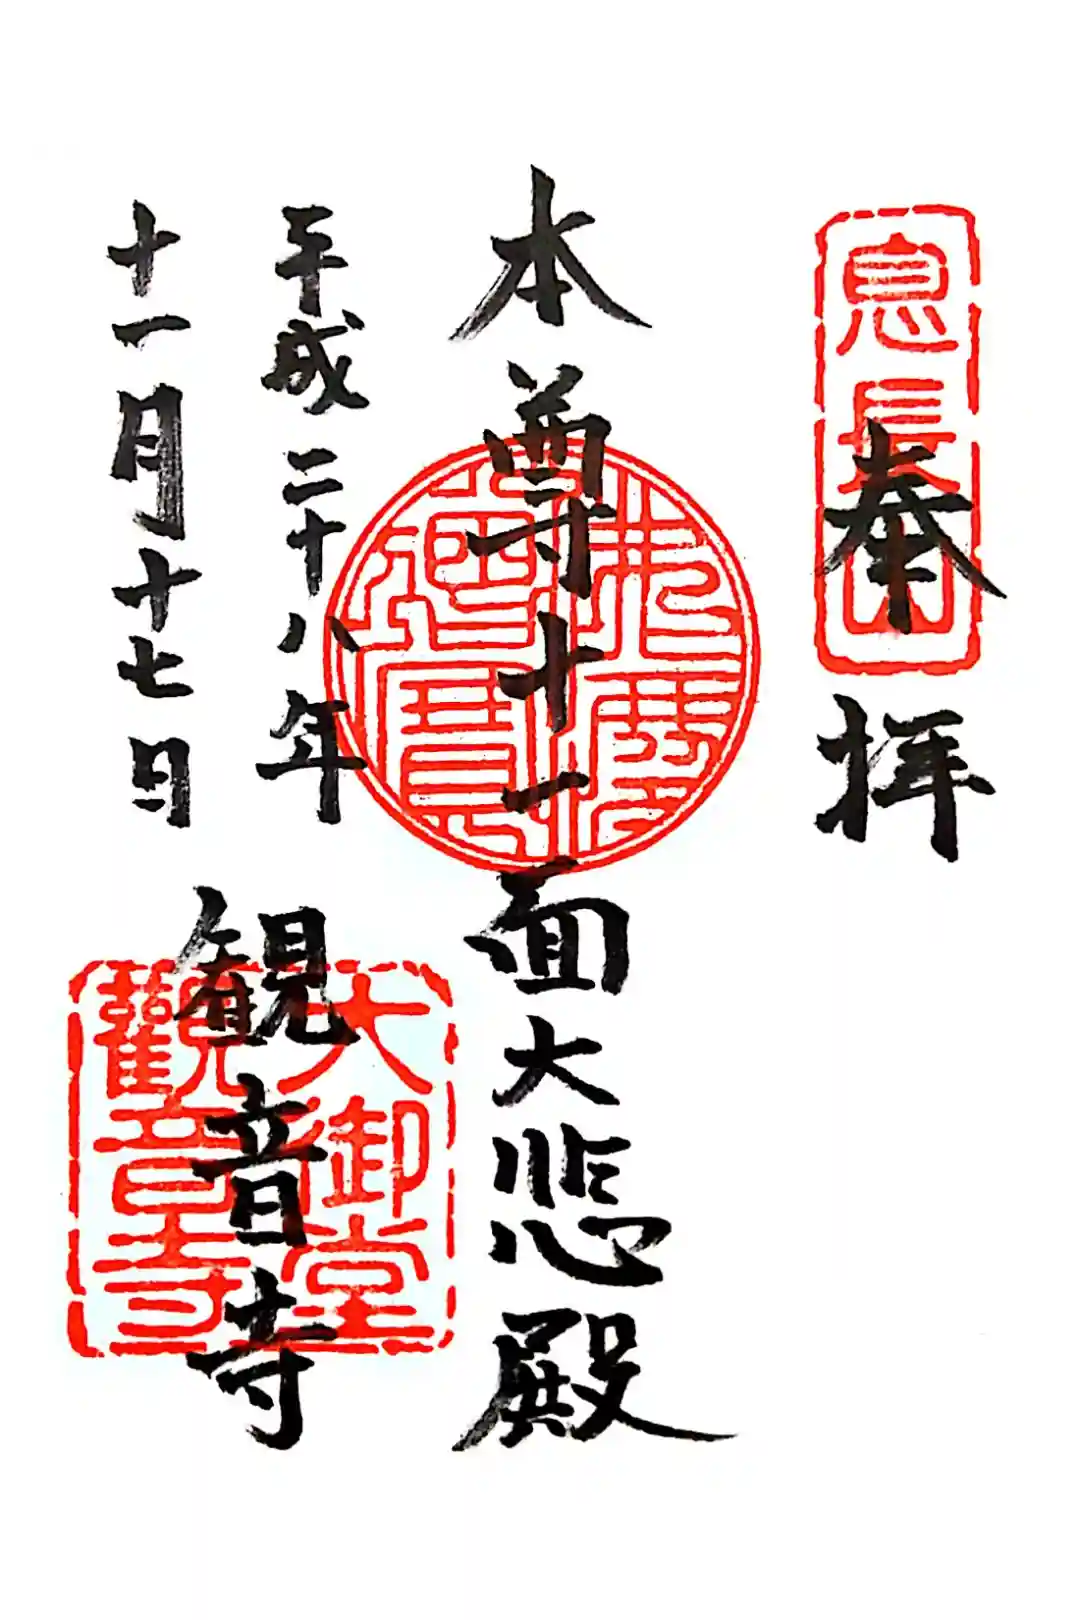 奉拝
息長山
本尊十一面大悲殿
平成二十八年
十一月十七日
観音寺
大御堂
觀音寺